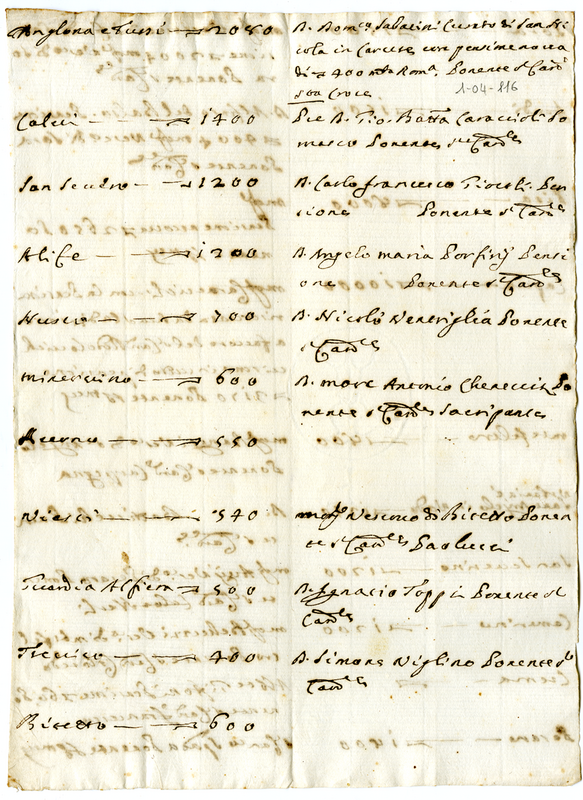 Anglona e Tursi — 2080
D. Dom.co Sabatini Curato di San Ni
cola in Carcere con pensione nova
di 400 m.ta Rom.a Ponente il Card.
S.ta Croce
1-04-816
Calvi — 1400
Pre D. Gio. Batta Caraccioli So
masco Ponente il Card.le
San Severo — 1200
D. Carlo francesco Giocoli Pen
sione Ponente il Card.le
Alife — 1200
D. Angelo maria Porfirij Pensi
one Ponente il Card.le
Nusco — 700
D. Nicolò Ventriglia Ponente
il Card.le
minervino — 600
D. marc Antonio Po
nente il Card.le Sacripante
Acerno — 550
Viesti — 540
Vescovo di Bitetto Ponen
te il Card.le Paolucci
Guardia Alfiera — 500
D. Ignacio Toppi Ponente il
Card.le
Trevico — 400
D. Simone Viglino Ponente il
Card.le
Bitetto — 600